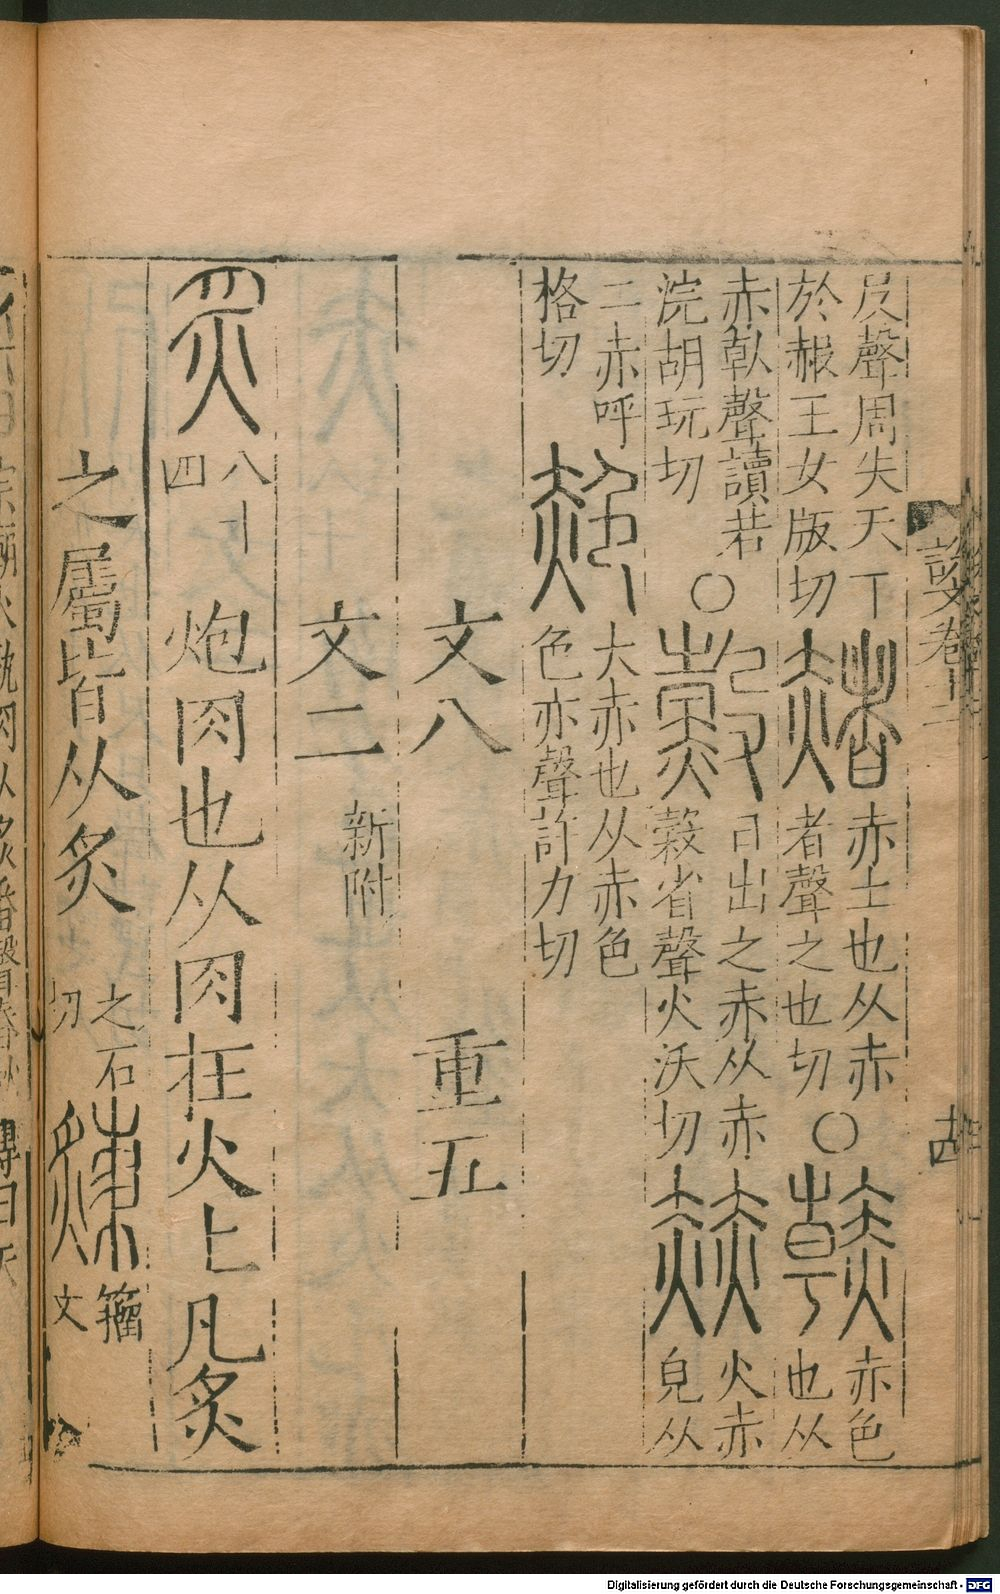 𠬝聲周失天丅
於赧王女版切
赭
赤土也从赤
者聲之也切
○
赤色
也从
赤倝聲讀若
浣胡玩切
○
日出之赤从赤
穀省聲火沃切
赫
火赤
皃从
二赤呼
格切
赩
大赤也从赤色
色亦聲許力切
文八　重五
文二　新附
炙
八丨
四
炮肉也从肉在火上凡炙
之屬皆从炙
之石
切
籒
文
說文卷十二
十四
Digitalisierung gefördert durch die Deutsche Forschungsgemeinschaft - DFG